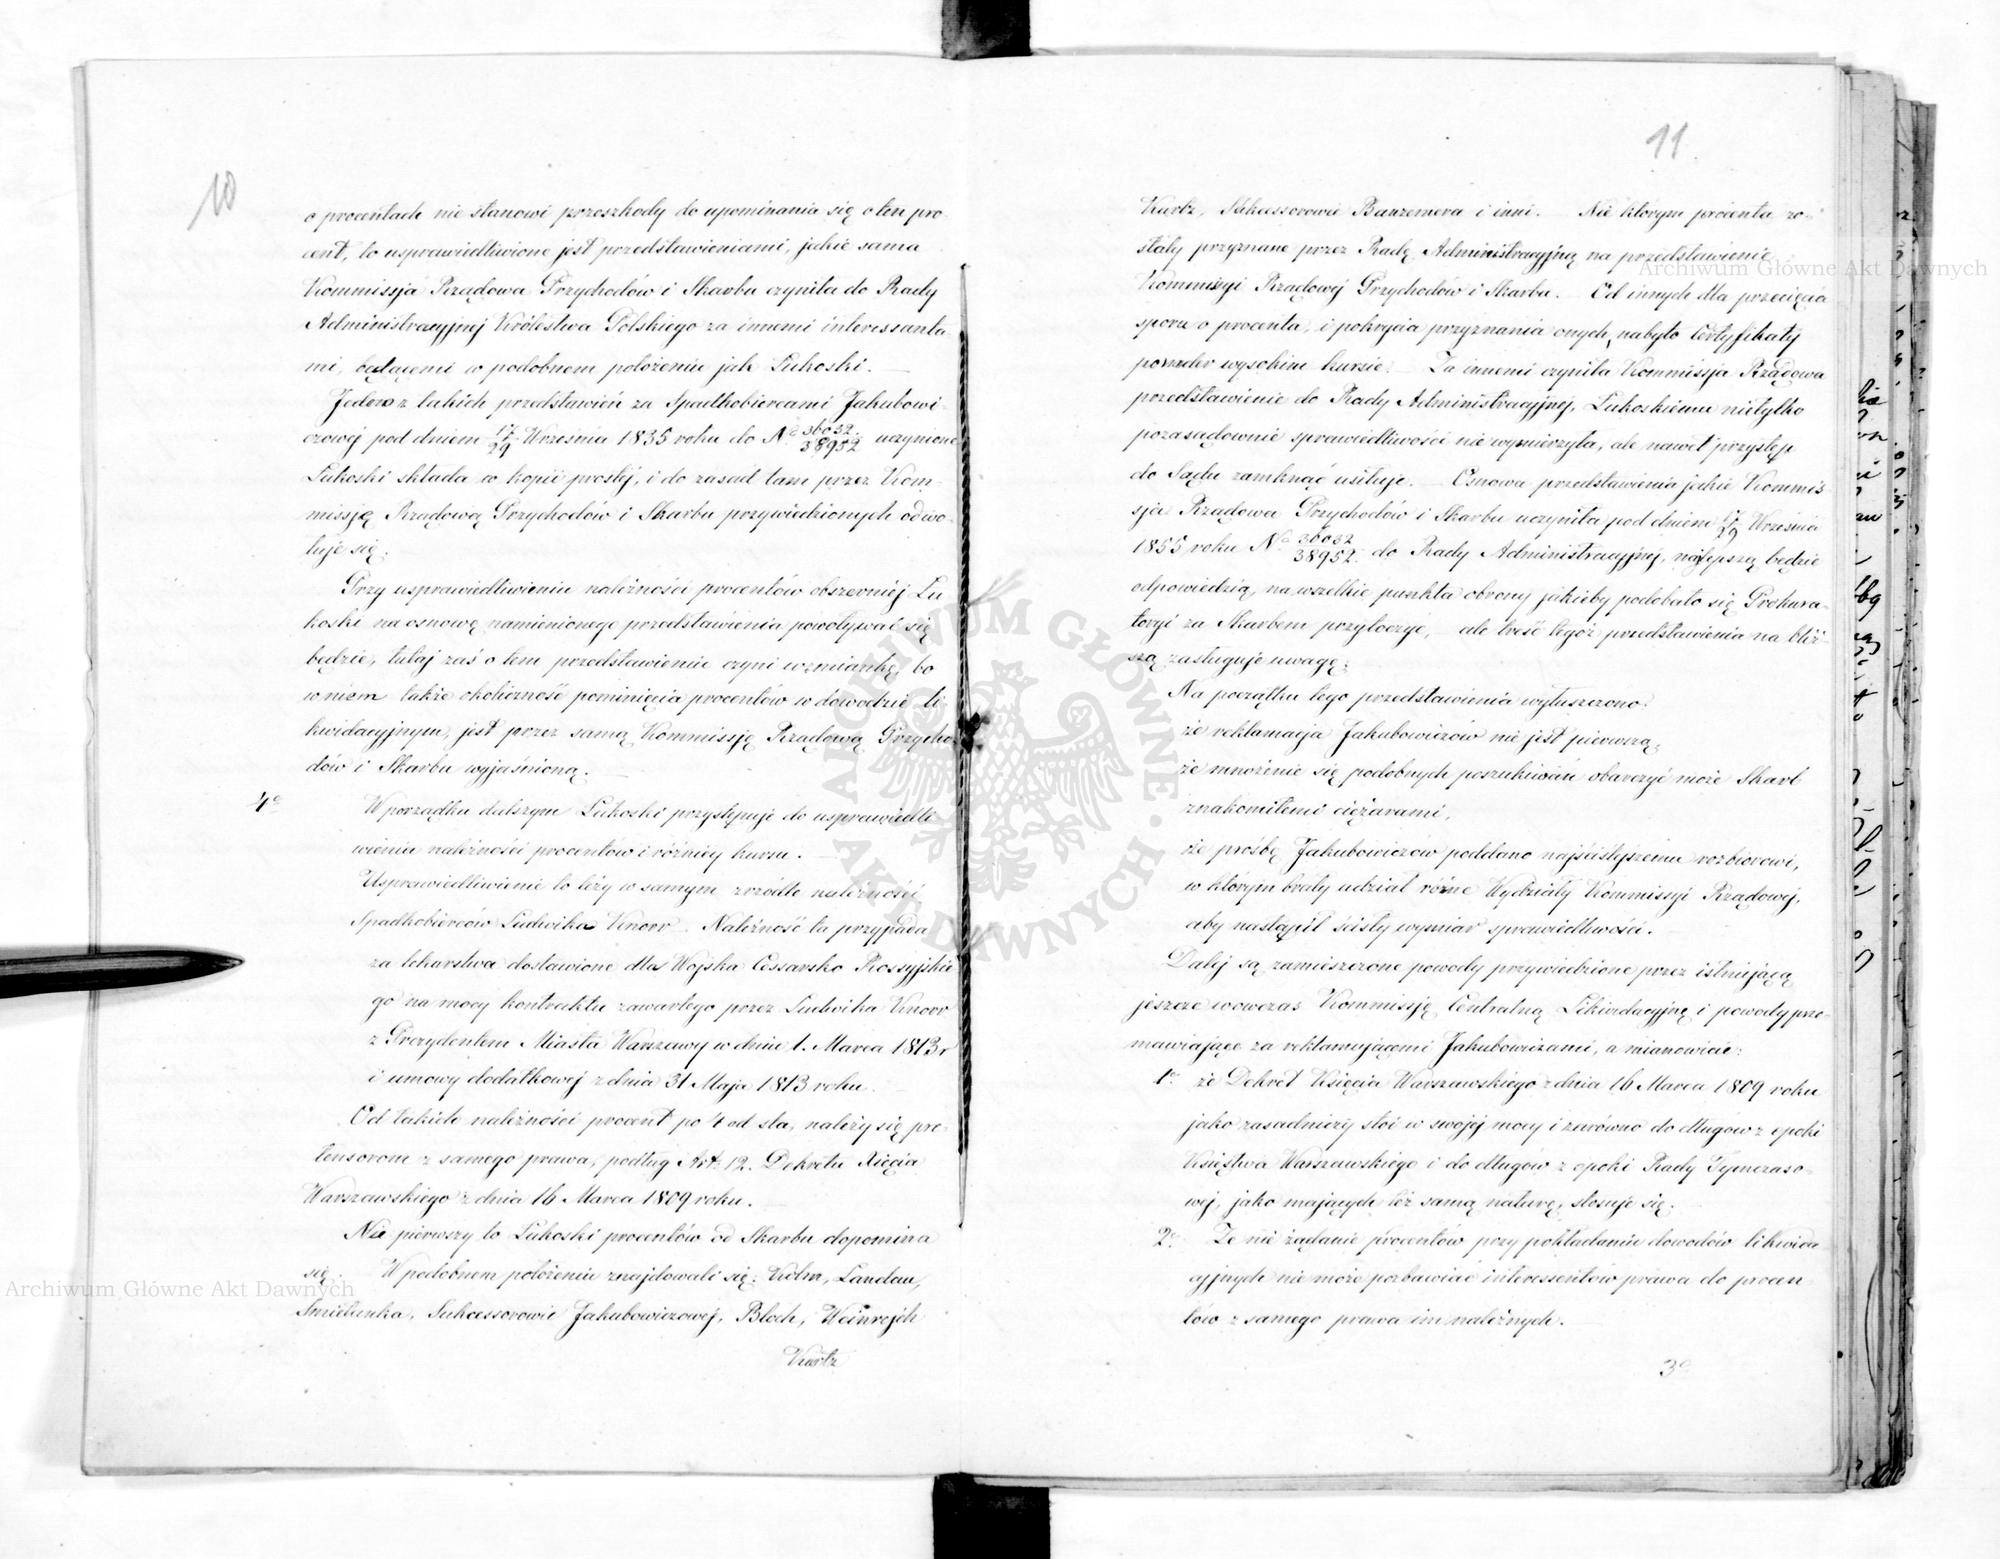 10
o procentach nie stanowi przeszkody do upominania się o ten pro-
cent, to usprawiedliwione jest przedstawieniami, jakie sama
Kommissja Rządowa Przychodów i Skarbu czyniła do Rady
Administracyjnej Królestwa Polskiego za innemi interessanta
mi, będącemi w podobnem położeniu jak Łukoski.
Jedno z takich przedstawień za Spadkobiercami Jakubowi-
czowej pod dniem 17/29 Września 1835 roku do Nº 36032/38952 uczynione
Łukoski składa w kopii prostéj, i do zasad tam przez Kom-
missję Rządową Przychodów i Skarbu przywiedzionych odwo-
łuje się.
Przy usprawiedliwieniu należności procentów obszerniéj Łu
koski na osnowę namienionego przedstawienia powoływać się
będzie, tutaj zaś o tem przedstawieniu czyni wzmiankę, bo
w niem także okoliczność pominięcia procentów w dowodzie li
kwidacyjnym, jest przez samą Kommissję Rządową Przycho-
dów i Skarbu wyjaśnioną.
4º W porządku dalszym Łukoski przystępuje do usprawiedli
wienia należności procentów i różnicy kursu.
Usprawiedliwienie to leży w samym zrzódle należności
Spadkobierców Ludwika Knorr. Należność ta przypada
za lekarstwa dostawione dla Wojska Cessarsko Rossyjskie
go na mocy kontraktu zawartego przez Ludwika Knorr
z Prezydentem Miasta Warszawy w dniu 1. Marca 1813 r
i umowy dodatkowej z dnia 31 Maja 1813 roku.
Od takich należności procent po 4 od sta, należy się pre-
tensorom z samego prawa, podług Art. 12. Dekretu Xięcia
Warszawskiego z dnia 16 Marca 1809 roku.
Nie pierwszy to Łukoski procentów od Skarbu dopomina
się. W podobnem położeniu znajdowali się: Kolm, Landau,
Sukcessorowie Jakubowiczowej, Bloch, Weinrejch
Kurtz
11
Kurtz, Sukcessorowie Banzemera i inni. Nie którym procenta zo-
stały przyznane przez Radę Administracyjną na przedstawienie
Kommissyi Rządowéj Przychodów i Skarbu. Od innych dla przecięcia
sporu o procenta, i pokrycia przyznania onych, nabyto Certyfikaty
po nader wysokim kursie. Za innemi czyniła Kommissja Rządowa
przedstawienie do Rady Administracyjnej, Łukoskiemu nietylko
pozasądownie sprawiedliwości nie wymierzyła, ale nawet przystęp
do Sądu zamknąć usiłuje. Osnowa przedstawienia jakie Kommis
sja Rządowa Przychodów i Skarbu uczyniła pod dniem 17/29 Września
1855 roku Nº 36032/38952 do Rady Administracyjnej, najlepszą będzie
odpowiedzią, na wszelkie punkta obrony jakieby podobało się Prokura-
toryi za Skarbem przytoczyć, ale treść tegóż przedstawienia na bliż-
szą zasługuje uwagę.
Na początku tego przedstawienia wyłuszczono:
że reklamacja Jakubowiczów nie jest pierwszą,
że mnożenie się podobnych poszukiwań obarczyć może Skarb
znakomitemi ciężarami,
że prośbę Jakubowiczow poddano najściślejszemu rozbiorowi,
w którym brały udział różne Wydziały Kommissyi Rządowej,
aby nastąpił ścisły wymiar sprawiedliwości.
Daléj są zamieszczone powody przywiedzione przez istniejącą
jeszcze wówczas Kommissję Centralną Likwidacyjną i powody prze-
mawiające za reklamującemi Jakubowiczami, a mianowicie:
1º że Dekret Księcia Warszawskiego z dnia 16 Marca 1809 roku
jako zasadniczy stoi w swojéj mocy i zarówno do długow z epoki
Księstwa Warszawskiego i do długów z epoki Rady Tymczaso-
wej, jako mających téż samą naturę, stosuje się.
2º Że nie żądanie procentów przy pokładaniu dowodów likwida
cyjnych nie może pozbawiać interessentów prawa do procen-
tów z samego prawa im należnych.
3º
Archiwum Główne Akt Dawnych
Archiwum Główne Akt Dawnych
ARCHIWUM GŁÓWNE AKT DAWNYCH